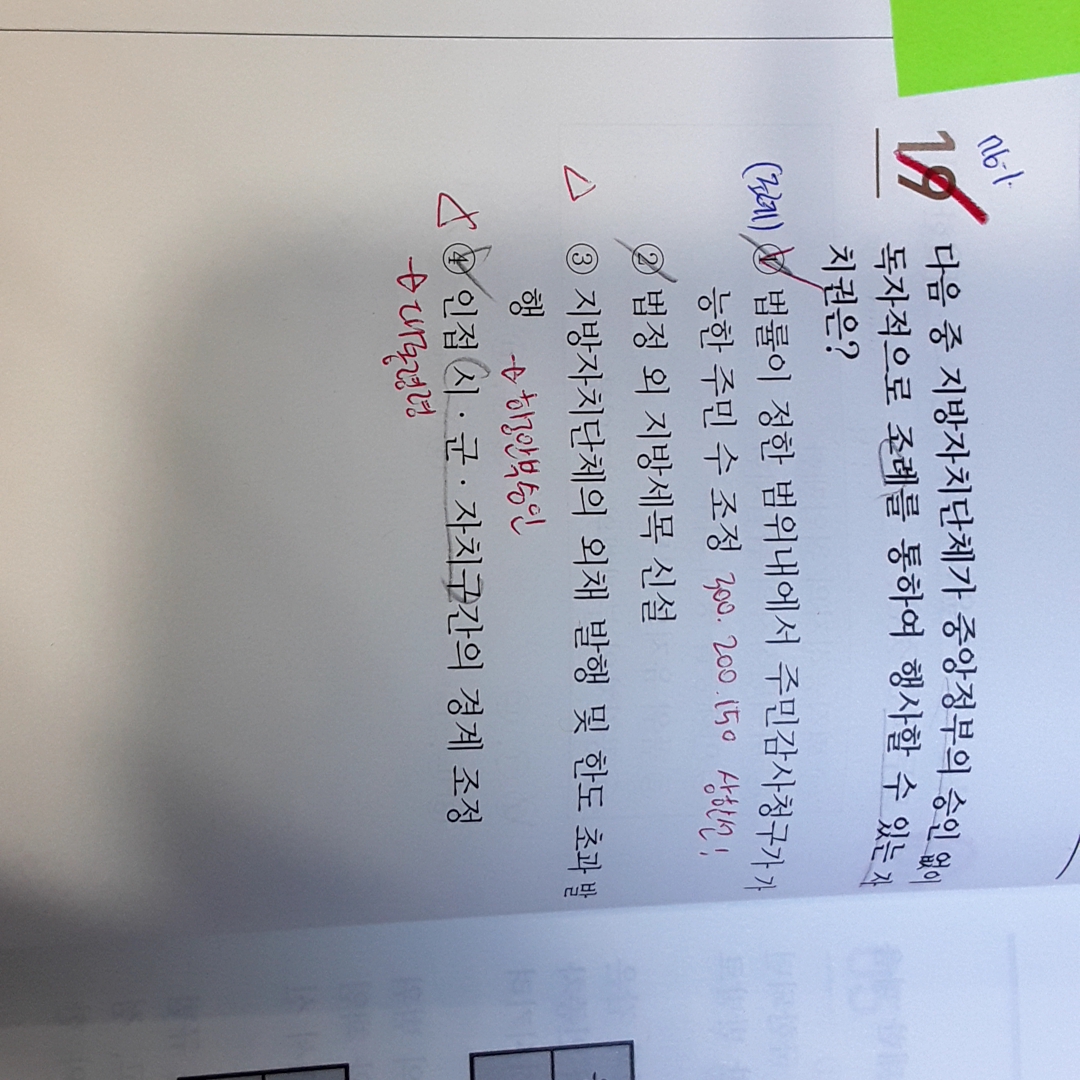 19
다음 중 지방자치단체가 중앙정부의 승인 없이
독자적으로 조례를 통하여 행사할 수 있는 자
치권은?
① 법률이 정한 범위내에서 주민감사청구가 가
능한 주민 수 조정 300. 200. 150 상한선!
② 법정 외 지방세목 신설
③ 지방자치단체의 외채 발행 및 한도 초과 발
행
→ 행안부승인
④ 인접 시·군·자치구간의 경계 조정
→ 대통령령